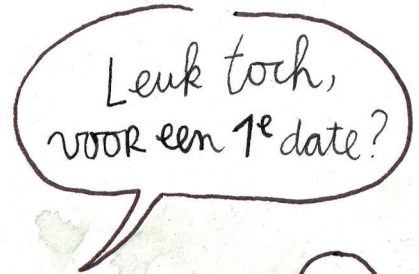 Leuk toch,
voor een 1e date?